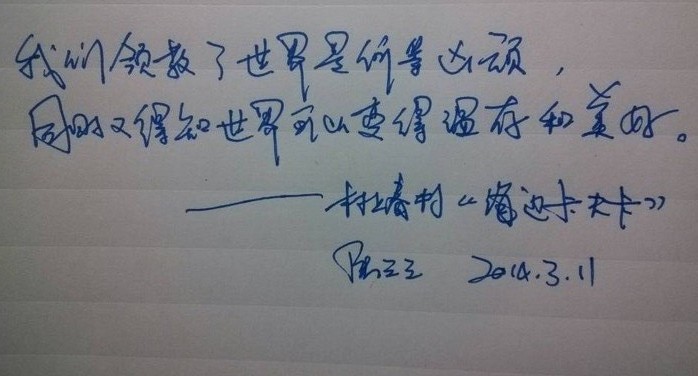 我们领教了世界是何等凶顽，
同时又得知世界可以变得温存和美好。
——村上春树《海边卡夫卡》
2014.3.11